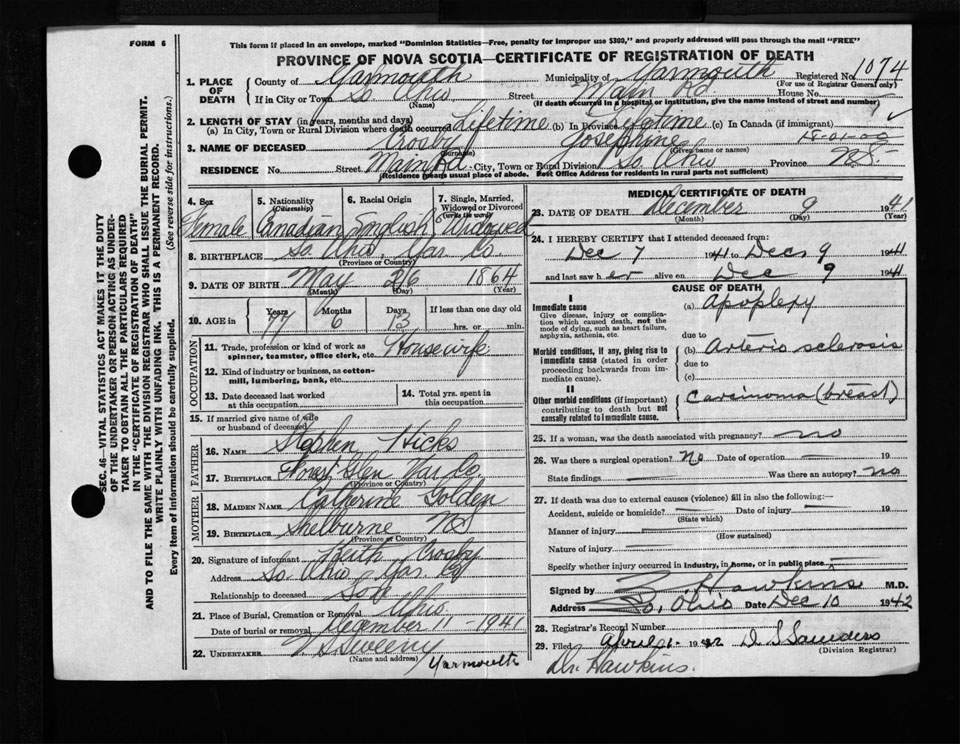 FORM 6
This form if placed in an envelope, marked "Dominion Statistics—Free, penalty for improper use $300," and properly addressed will pass through the mail "FREE"
PROVINCE OF NOVA SCOTIA—CERTIFICATE OF REGISTRATION OF DEATH
1. PLACE OF DEATH
County of Yarmouth Municipality of Yarmouth Registered No. 1074
(For use of Registrar General only)
If in City or Town So. Ohio Street Main Rd. House No.
(Name) (If death occurred in a hospital or institution, give the name instead of street and number)
2. LENGTH OF STAY (in years, months and days)
(a) In City, Town or Rural Division where death occurred Lifetime (b) In Province Lifetime (c) In Canada (if immigrant)
3. NAME OF DECEASED Crosby Josephine 18-01-00
(Surname) (Given name or names)
RESIDENCE No. Street Main Rd. City, Town or Rural Division So. Ohio Province N.S.
(Residence means usual place of abode. Post Office Address for residents in rural parts not sufficient)
SEC. 46—VITAL STATISTICS ACT MAKES IT THE DUTY
OF THE UNDERTAKER OR PERSON ACTING AS UNDER-
TAKER TO OBTAIN ALL THE PARTICULARS REQUIRED
IN THE "CERTIFICATE OF REGISTRATION OF DEATH"
AND TO FILE THE SAME WITH THE DIVISION REGISTRAR WHO SHALL ISSUE THE BURIAL PERMIT.
WRITE PLAINLY WITH UNFADING INK. THIS IS A PERMANENT RECORD.
Every item of information should be carefully supplied. (See reverse side for instructions.)
4. Sex Female
5. Nationality (Citizenship) Canadian
6. Racial Origin English
7. Single, Married, Widowed or Divorced (write the word) Widowed
8. BIRTHPLACE So. Ohio, Yar Co.
(Province or Country)
9. DATE OF BIRTH May 26 1864
(Month) (Day) (Year)
10. AGE in Years 77 Months 6 Days 13 If less than one day old
hrs. or min.
OCCUPATION
11. Trade, profession or kind of work as spinner, teamster, office clerk, etc. Housewife
12. Kind of industry or business, as cotton-mill, lumbering, bank, etc.
13. Date deceased last worked at this occupation
14. Total yrs. spent in this occupation
15. If married give name of wife or husband of deceased
FATHER
16. NAME Stephen Hicks
17. BIRTHPLACE Forest Glen Yar Co
(Province or Country)
MOTHER
18. MAIDEN NAME Catherine Golden
19. BIRTHPLACE Shelburne NS
(Province or Country)
20. Signature of informant Keith Crosby
Address So. Ohio Yar. Co
Relationship to deceased Son
21. Place of Burial, Cremation or Removal Ohio
Date of burial or removal December 11 - 1941
22. UNDERTAKER Sweeny
(Name and address) Yarmouth
MEDICAL CERTIFICATE OF DEATH
23. DATE OF DEATH December 9 1941
(Month) (Day) (Year)
24. I HEREBY CERTIFY that I attended deceased from:
Dec 7 1941 to Dec 9 1941
and last saw her alive on Dec 9 1941
CAUSE OF DEATH
I
Immediate cause
Give disease, injury or complication which caused death, not the mode of dying, such as heart failure, asphyxia, asthenia, etc.
(a) Apoplexy
due to
Morbid conditions, if any, giving rise to immediate cause (stated in order proceeding backwards from immediate cause).
(b) Arterio sclerosis
due to
(c)
II
Other morbid conditions (if important) contributing to death but not causally related to immediate cause.
Carcinoma (breast)
25. If a woman, was the death associated with pregnancy? no
26. Was there a surgical operation? No Date of operation — 19
State findings — Was there an autopsy? no
27. If death was due to external causes (violence) fill in also the following:—
Accident, suicide or homicide? — Date of injury — 19
(State which)
Manner of injury —
(How sustained)
Nature of injury —
Specify whether injury occurred in industry, in home, or in public place —
Signed by Hawkins M.D.
Address So. Ohio Date Dec 10 1942
28. Registrar's Record Number
29. Filed April 21 - 1942 D S Saunders
(Division Registrar)
Dr. Hawkins.